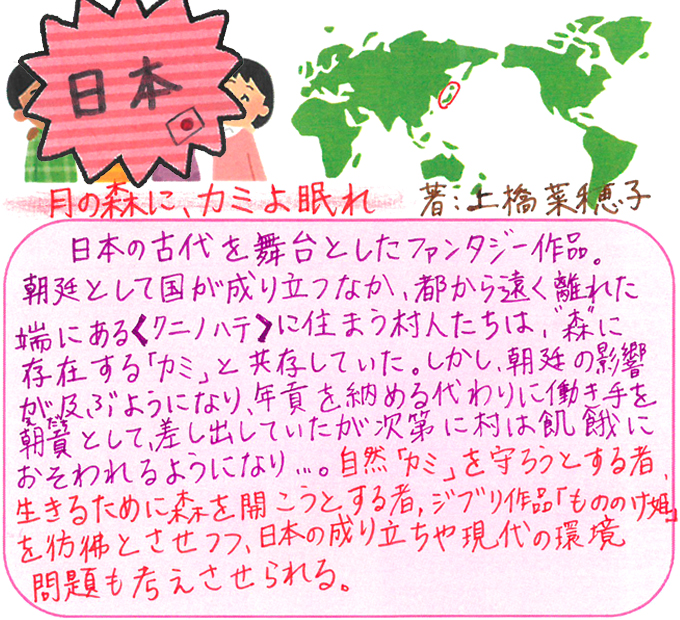 日本
月の森に、カミよ眠れ 著:上橋菜穂子
日本の古代を舞台としたファンタジー作品。
朝廷として国が成り立つなか、都から遠く離れた
端にある《クニノハテ》に住まう村人たちは、"森"に
存在する「カミ」と共存していた。しかし、朝廷の影響
が及ぶようになり、年貢を納める代わりに働き手を
朝貢として、差し出していたが次第に村は飢餓に
おそわれるようになり…。自然「カミ」を守ろうとする者、
生きるために森を開こうとする者、ジブリ作品「もののけ姫」
を彷彿とさせつつ、日本の成り立ちや現代の環境
問題も考えさせられる。